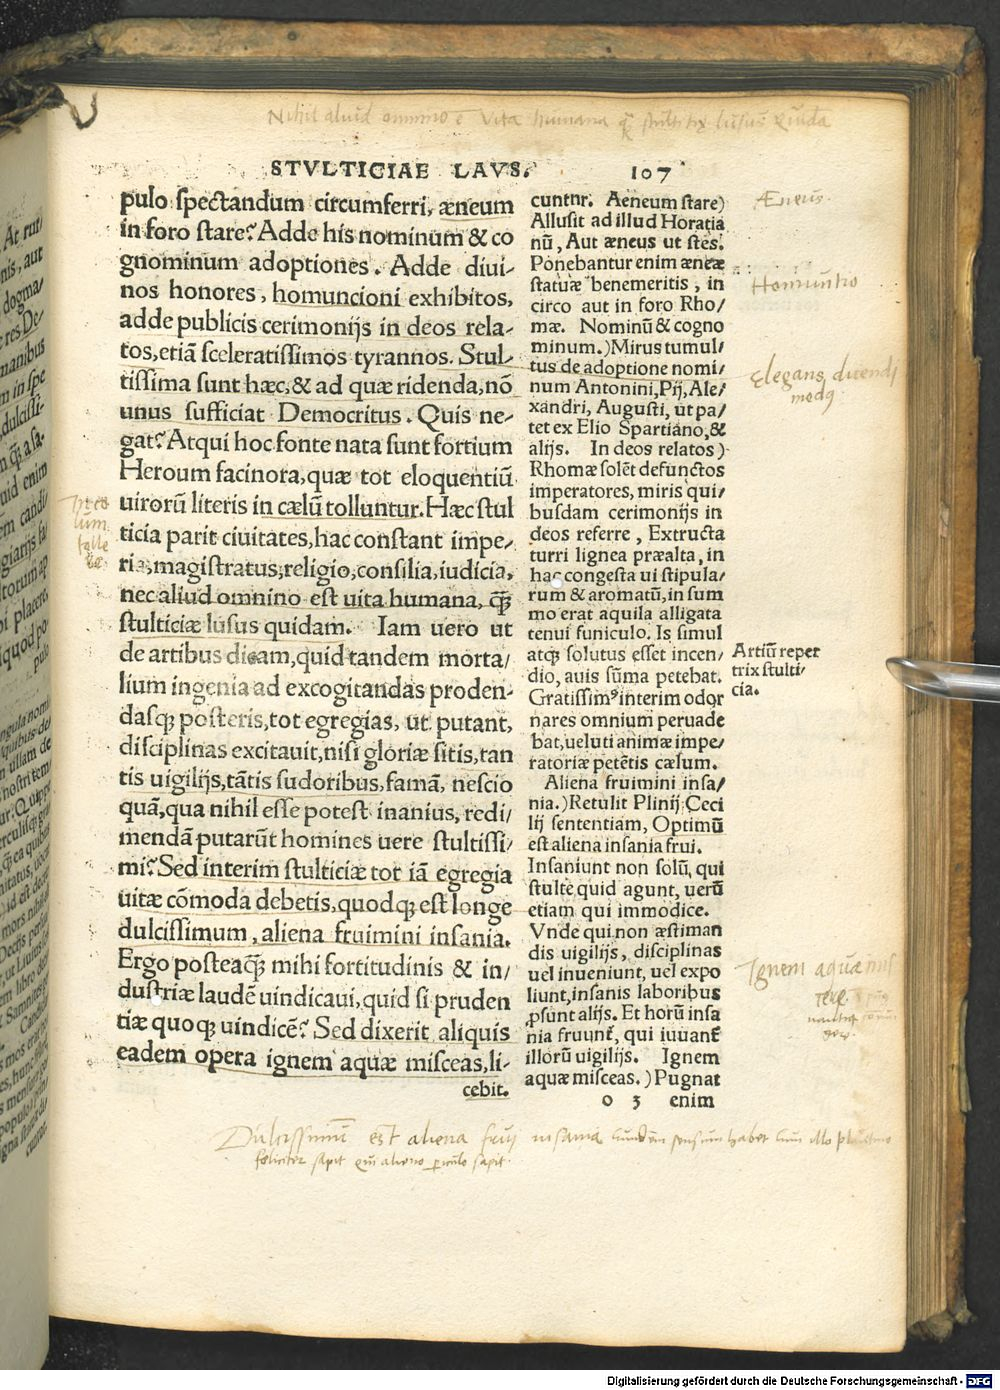 Nihil aliud omnino ē Vita humana qͣ̄ stulticiæ lusus quidā
STVLTICIAE LAVS. 107
pulo spectandum circumferri, æneum
in foro stare? Adde his nominum & co
gnominum adoptiones. Adde diui-
nos honores, homuncioni exhibitos,
adde publicis cerimonijs in deos rela-
tos, etiā sceleratissimos tyrannos. Stul-
tissima sunt hæc, & ad quæ ridenda, nō
unus sufficiat Democritus. Quis ne-
gat? Atqui hoc fonte nata sunt fortium
Heroum facinora, quæ tot eloquentiū
uirorū literis in cælū tolluntur. Hæc stul
ticia parit ciuitates, hac constant impe-
ria, magistratus, religio, consilia, iudicia,
nec aliud omnino est uita humana, q̃ꝫ
stulticiæ lusus quidam. Iam uero ut
de artibus dicam, quid tandem morta/
lium ingenia ad excogitandas proden-
dasqꝫ posteris, tot egregias, ut putant,
disciplinas excitauit, nisi gloriæ sitis, tan
tis uigilijs, tātis sudoribus, famā, nescio
quā, qua nihil esse potest inanius, redi/
mendā putarūt homines uere stultissi/
mi? Sed interim stulticiæ tot iā egregia
uitæ cōmoda debetis, quodqꝫ est longe
dulcissimum, aliena fruimini insania.
Ergo posteaq̃ꝫ mihi fortitudinis & in/
dustriæ laudē uindicaui, quid si pruden
tiæ quoqꝫ uindicē? Sed dixerit aliquis
eadem opera ignem aquæ misceas, li-
cebit.
cuntur. Aeneum stare)
Allusit ad illud Horatia
nū, Aut æneus ut stes.
Ponebantur enim æneæ
statuæ benemeritis, in
circo aut in foro Rho/
mæ. Nominū & cogno
minum.) Mirus tumul/
tus de adoptione nomi/
num Antonini, Pij, Ale/
xandri, Augusti, ut pa/
tet ex Elio Spartiano, &
alijs. In deos relatos)
Rhomæ solēt defunctos
imperatores, miris qui/
busdam cerimonijs in
deos referre, Extructa
turri lignea præalta, in
hac congesta ui stipula/
rum & aromatū, in sum
mo erat aquila alligata
tenui funiculo. Is simul
atqꝫ solutus esset incen/
dio, auis sūma petebat.
Gratissimꝰ interim odor
nares omnium peruade
bat, ueluti animæ impe/
ratoriæ petētis cælum.
Aliena fruimini insa/
nia.) Retulit Plinij Ceci
lij sententiam, Optimū
est aliena insania frui.
Insaniunt non solū, qui
stulte quid agunt, uerū
etiam qui immodice.
Vnde qui non æstiman
dis uigilijs, disciplinas
uel inueniunt, uel expo
liunt, insanis laboribus
ꝓsunt alijs. Et horū insa
nia fruunt̃, qui iuuant̃
illorū uigilijs. Ignem
aquæ misceas.) Pugnat
o 3 enim
Æneus.
Homuntio
Elegans dicendi
modꝰ
Artiū reper
trix stulti/
cia.
Ignem aquæ mis
cere
In cæ
lum
tolle
re
Dulcissimū est aliena frui insania eundem sensum habet cum illo
fœliciter sapit qui alieno periculo sapit.
At rut/
nis, aut
dogma/
res. De-
manibus
m in spe
dulcissi-
quid enim
em candi
Digitalisierung gefördert durch die Deutsche Forschungsgemeinschaft - DFG